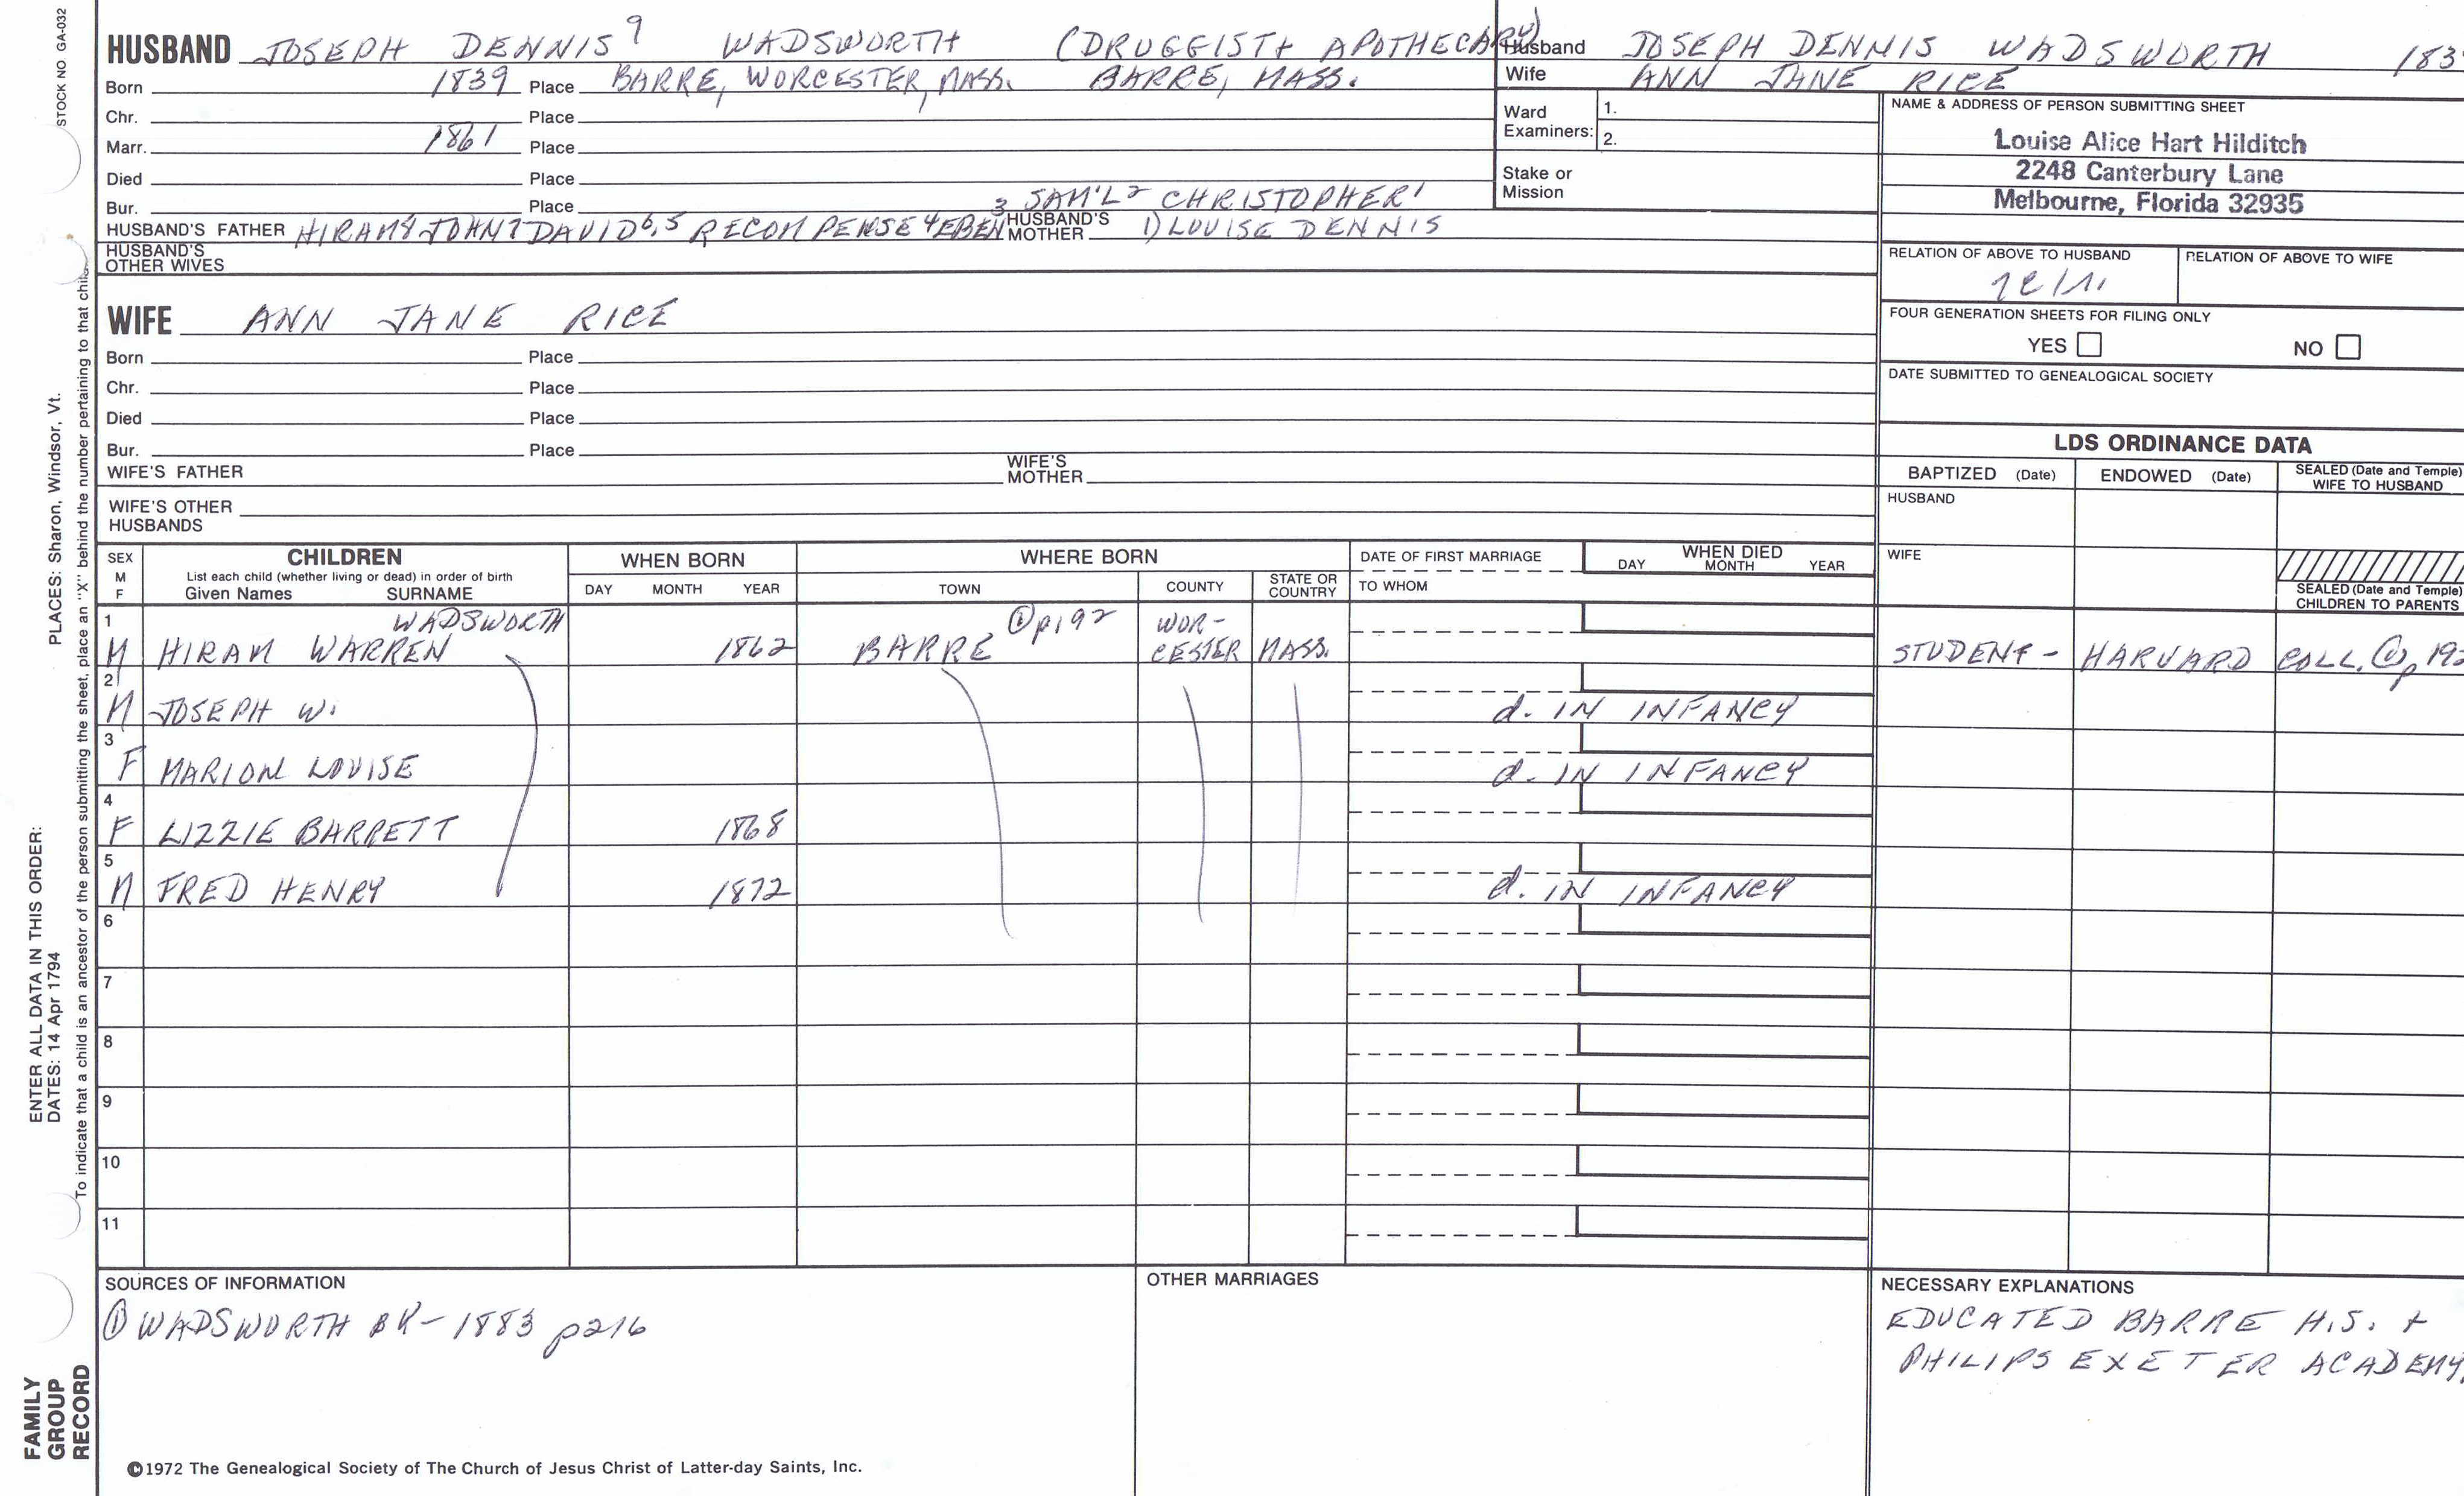 STOCK NO GA-032
HUSBAND JOSEPH DENNIS 9 WADSWORTH (DRUGGIST + APOTHECARY)
Born 1839 Place BARRE, WORCESTER, MASS. BARRE, MASS.
Chr. Place
Marr. 1861 Place
Died Place
Bur. Place 3 SAM'L 2 CHRISTOPHER 1
HUSBAND'S FATHER HIRAM 8 JOHN 7 DAVID 6,5 RECOMPENSE 4 EBEN HUSBAND'S MOTHER 1) LOUISE DENNIS
HUSBAND'S OTHER WIVES
WIFE ANN JANE RICE
Born Place
Chr. Place
Died Place
Bur. Place
WIFE'S FATHER WIFE'S MOTHER
WIFE'S OTHER HUSBANDS
Husband JOSEPH DENNIS WADSWORTH 183
Wife ANN JANE RICE
Ward Examiners: 1.
2.
Stake or Mission
NAME & ADDRESS OF PERSON SUBMITTING SHEET
Louise Alice Hart Hilditch
2248 Canterbury Lane
Melbourne, Florida 32935
RELATION OF ABOVE TO HUSBAND RELATION OF ABOVE TO WIFE
FOUR GENERATION SHEETS FOR FILING ONLY
YES NO
DATE SUBMITTED TO GENEALOGICAL SOCIETY
LDS ORDINANCE DATA
BAPTIZED (Date) ENDOWED (Date) SEALED (Date and Temple) WIFE TO HUSBAND
HUSBAND
WIFE
SEALED (Date and Temple) CHILDREN TO PARENTS
SEX M F CHILDREN WHEN BORN WHERE BORN DATE OF FIRST MARRIAGE WHEN DIED
List each child (whether living or dead) in order of birth
Given Names SURNAME DAY MONTH YEAR TOWN COUNTY STATE OR COUNTRY TO WHOM DAY MONTH YEAR
1 WADSWORTH ① p192 WOR-
M HIRAM WARREN 1862 BARRE CESTER MASS. STUDENT - HARVARD COLL. ① p 192
2
M JOSEPH W. d. IN INFANCY
3
F MARION LOUISE d. IN INFANCY
4
F LIZZIE BARRETT 1868
5
M FRED HENRY 1872 d. IN INFANCY
6
7
8
9
10
11
SOURCES OF INFORMATION
① WADSWORTH BK - 1883 p216
OTHER MARRIAGES
NECESSARY EXPLANATIONS
EDUCATED BARRE H.S. +
PHILIPS EXETER ACADEMY
©1972 The Genealogical Society of The Church of Jesus Christ of Latter-day Saints, Inc.
FAMILY GROUP RECORD
ENTER ALL DATA IN THIS ORDER:
DATES: 14 Apr 1794 PLACES: Sharon, Windsor, Vt.
To indicate that a child is an ancestor of the person submitting the sheet, place an "X" behind the number pertaining to that child